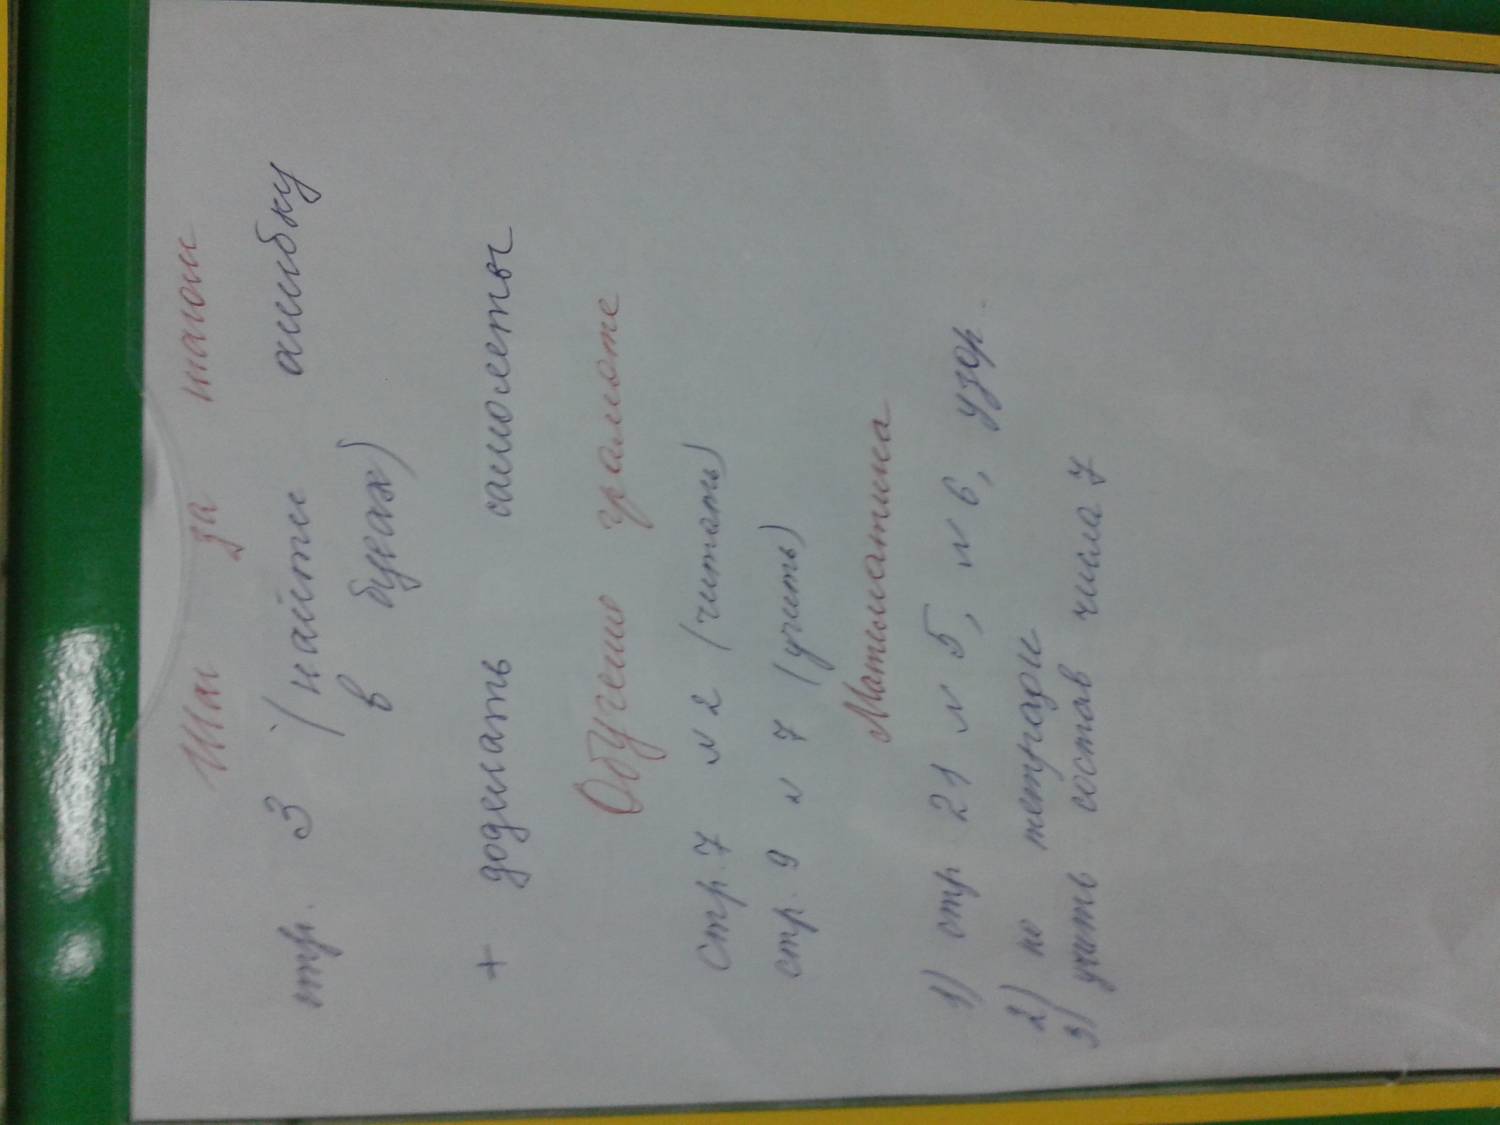 Шаг за шагом
стр. 3 (найти ошибку
в буквах)
+ доделать самолеты
Обучение грамоте
Стр. 7 № 2 (читать)
стр. 9 № 7 (учить)
Математика
1) стр 21 № 5, № 6, узор.
2) по тетради
3) учить состав числа 7